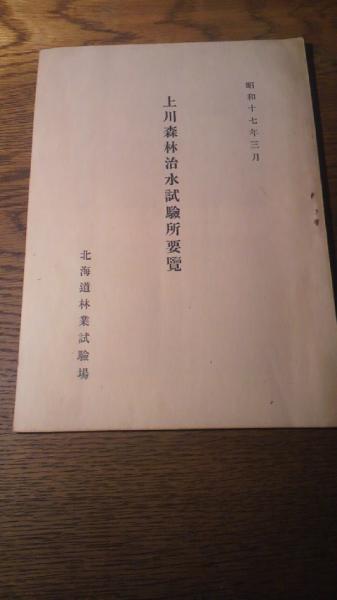 昭和十七年三月
上川森林治水試驗所要覽
北海道林業試驗場